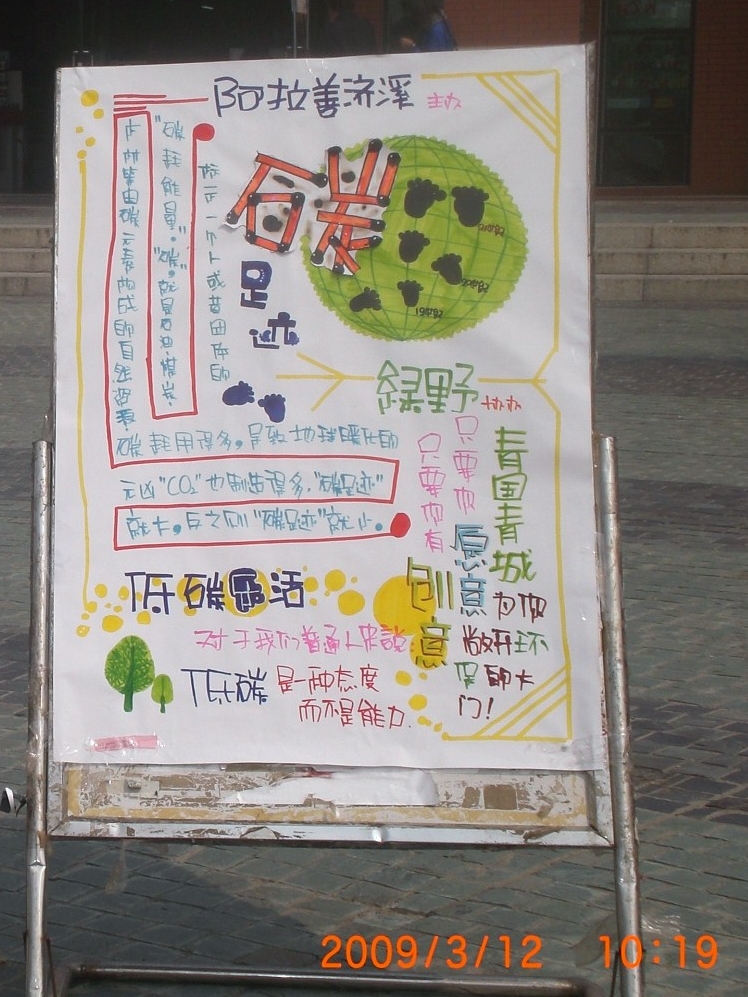 阿拉善济溪 主办
碳
足迹
21世纪
20世纪
19世纪
标示一个人或者团体的
"碳耗能量"."碳",就是石油、煤炭、
木材等由碳元素构成的自然资源.
碳耗用得多,导致地球暖化的
元凶"CO₂"也制造得多,"碳足迹"
就大,反之则"碳足迹"就小.
緑野 协办
只要你有
创意
只要你
愿意
青国青城
为你
敞开环
保的大
门!
低碳生活
对于我们普通人来说
低碳是一种态度
而不是能力.
2009/3/12 10:19